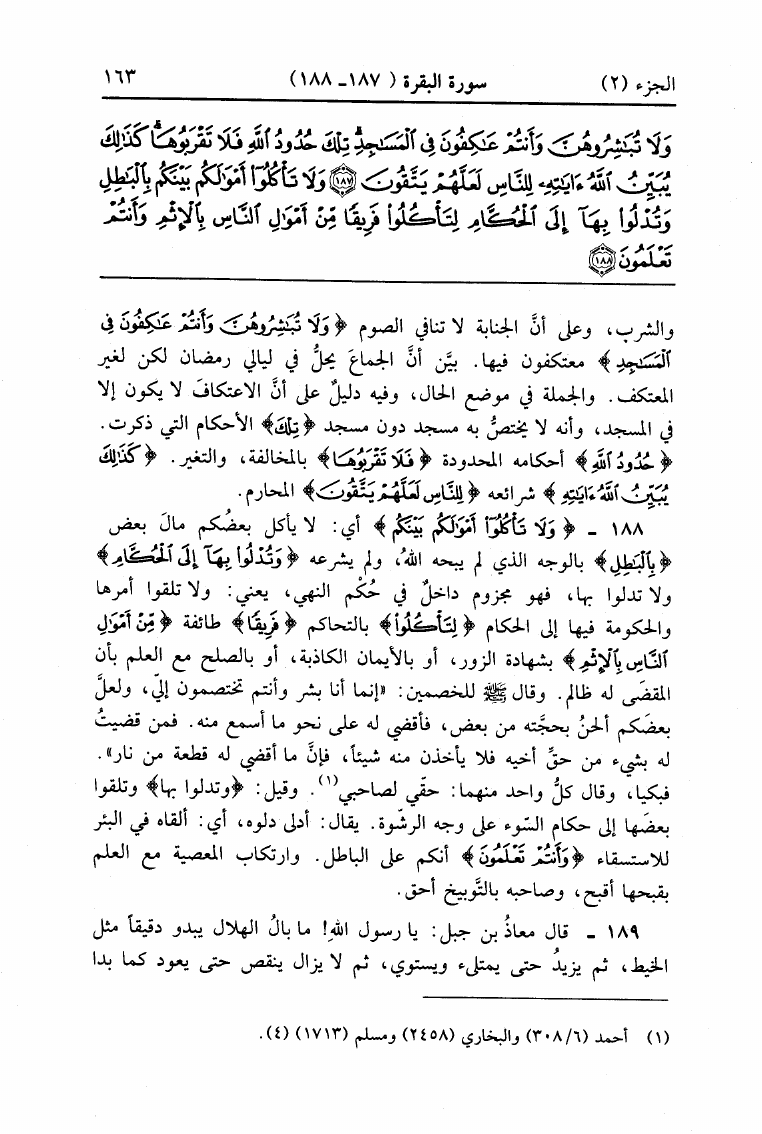 الجزء (٢) سورة البقرة ( ١٨٧ـ ١٨٨) ١٦٣
وَلَا تُبَٰشِرُوهُنَّ وَأَنتُمْ عَٰكِفُونَ فِى ٱلْمَسَٰجِدِ تِلْكَ حُدُودُ ٱللَّهِ فَلَا تَقْرَبُوهَا كَذَٰلِكَ
يُبَيِّنُ ٱللَّهُ ءَايَٰتِهِۦ لِلنَّاسِ لَعَلَّهُمْ يَتَّقُونَ ١٨٧ وَلَا تَأْكُلُوٓا۟ أَمْوَٰلَكُم بَيْنَكُم بِٱلْبَٰطِلِ
وَتُدْلُوا۟ بِهَآ إِلَى ٱلْحُكَّامِ لِتَأْكُلُوا۟ فَرِيقًا مِّنْ أَمْوَٰلِ ٱلنَّاسِ بِٱلْإِثْمِ وَأَنتُمْ
تَعْلَمُونَ ١٨٨
والشرب، وعلى أنَّ الجنابة لا تنافي الصوم ﴿وَلَا تُبَٰشِرُوهُنَّ وَأَنتُمْ عَٰكِفُونَ فِى
ٱلْمَسَٰجِدِ﴾ معتكفون فيها. بيَّن أنَّ الجماعَ يحلُّ في ليالي رمضان لكن لغير
المعتكف. والجملة في موضع الحال، وفيه دليلٌ على أنَّ الاعتكافَ لا يكون إلا
في المسجد، وأنه لا يختصُّ به مسجد دون مسجد ﴿تِلْكَ﴾ الأحكام التي ذكرت.
﴿حُدُودُ ٱللَّهِ﴾ أحكامه المحدودة ﴿فَلَا تَقْرَبُوهَا﴾ بالمخالفة، والتغير. ﴿كَذَٰلِكَ
يُبَيِّنُ ٱللَّهُ ءَايَٰتِهِ﴾ شرائعه ﴿لِلنَّاسِ لَعَلَّهُمْ يَتَّقُونَ﴾ المحارم.
١٨٨ ـ ﴿وَلَا تَأْكُلُوٓا۟ أَمْوَٰلَكُم بَيْنَكُم﴾ أي: لا يأكل بعضُكم مالَ بعض
﴿بِٱلْبَٰطِلِ﴾ بالوجه الذي لم يبحه اللهُ، ولم يشرعه ﴿وَتُدْلُوا۟ بِهَآ إِلَى ٱلْحُكَّامِ﴾
ولا تدلوا بها، فهو مجزوم داخلٌ في حُكْم النهي، يعني: ولا تلقوا أمرها
والحكومة فيها إلى الحكام ﴿لِتَأْكُلُوا۟﴾ بالتحاكم ﴿فَرِيقًا﴾ طائفة ﴿مِّنْ أَمْوَٰلِ
ٱلنَّاسِ بِٱلْإِثْمِ﴾ بشهادة الزور، أو بالأيمان الكاذبة، أو بالصلح مع العلم بأن
المقضَى له ظالم. وقال ﷺ للخصمين: «إنما أنا بشر وأنتم تختصمون إليّ، ولعلَّ
بعضَكم ألحنُ بحجَّته من بعض، فأقضي له على نحو ما أسمع منه. فمن قضيتُ
له بشيء من حقِّ أخيه فلا يأخذن منه شيئاً، فإنَّ ما أقضي له قطعة من نار».
فبكيا، وقال كلُّ واحد منهما: حقّي لصاحبي(١). وقيل: ﴿وتدلوا بها﴾ وتلقوا
بعضَها إلى حكام السّوء على وجه الرشّوة. يقال: أدلى دلوه، أي: ألقاه في البئر
للاستسقاء ﴿وَأَنتُمْ تَعْلَمُونَ﴾ أنكم على الباطل. وارتكاب المعصية مع العلم
بقبحها أقبح، وصاحبه بالتَّوبيخ أحق.
١٨٩ ـ قال معاذُ بن جبل: يا رسول اللهِ! ما بالُ الهلال يبدو دقيقاً مثل
الخيط، ثم يزيدُ حتى يمتلىء ويستوي، ثم لا يزال ينقص حتى يعود كما بدا
(١) أحمد (٣٠٨/٦) والبخاري (٢٤٥٨) ومسلم (١٧١٣) (٤).